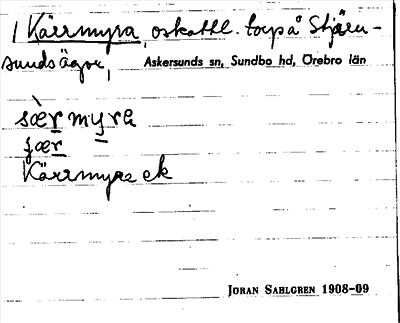 1 Kärrmyra, oskattl. torp å Stjärn-
sunds ägor, Askersunds sn, Sundbo hd, Örebro län
sær myra
fær
Kärrmyre ek
JÖRAN SAHLGREN 1908-09